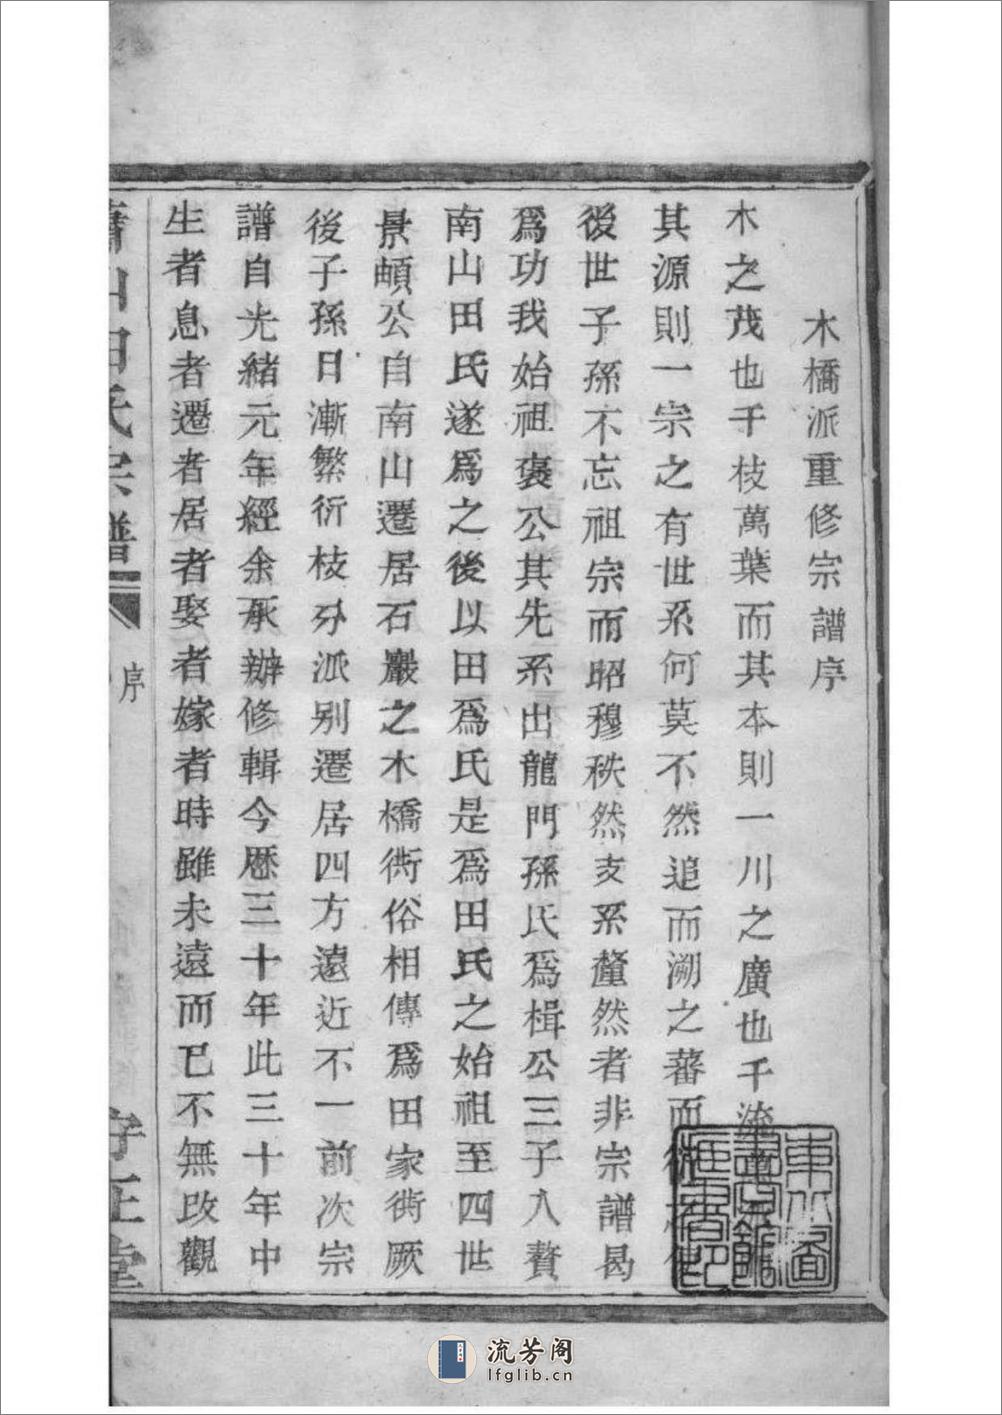 木橋派重修宗譜序
木之茂也千枝萬葉而其本則一川之廣也千流
其源則一宗之有世系何莫不然追而溯之蕃而
後世子孫不忘祖宗而昭穆秩然支系釐然者非宗譜曷
爲功我始祖褒公其先系出龍門孫氏爲楫公三子入贅
南山田氏遂爲之後以田爲氏是爲田氏之始祖至四世
景頔公自南山遷居石巖之木橋衖俗相傳爲田家衖厥
後子孫日漸繁衍枝分派别遷居四方遠近不一前次宗
譜自光緒元年經余承辦修輯今歷三十年此三十年中
生者息者遷者居者娶者嫁者時雖未遠而已不無改觀
蕭山田氏宗譜
序
守正堂
流芳阁
lfglib.cn